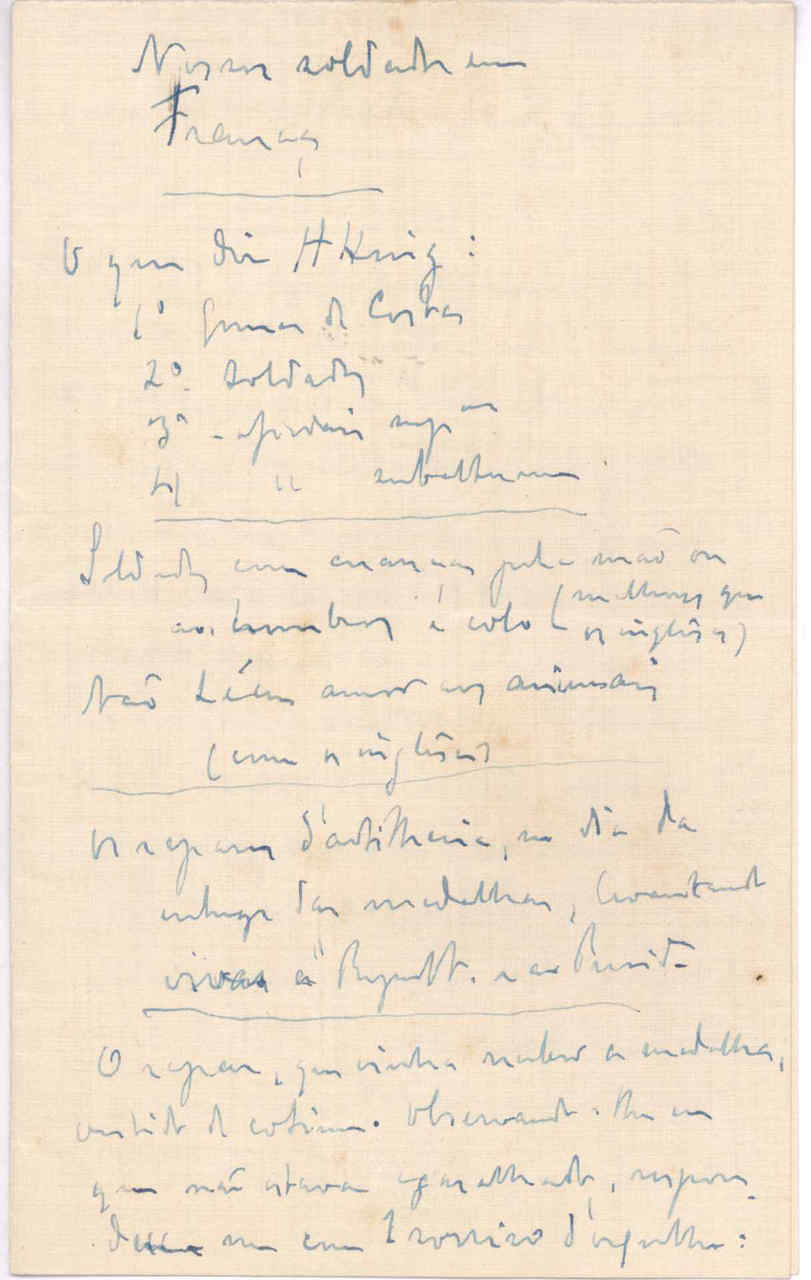 Nossos soldados em
França
O que diz H King:
1º Gomes de Costa
2º soldados
3º - oficiais supres
4 " subalternos
Soldados com crianças pela mão ou
aos hombros e colo (melhores que
os inglêses)
Não têem amor aos animais
(como os inglêses)
Os rapazes d'artilharia, no dia da
entrega das medalhas, levantando
vivas á Republ. e ao Presid.
O rapaz, que vinha receber a medalha,
vestido de cotim. Observando-lhe eu
que não estava agasalhado, respon-
deu me com 1 sorriso d'orgulho: